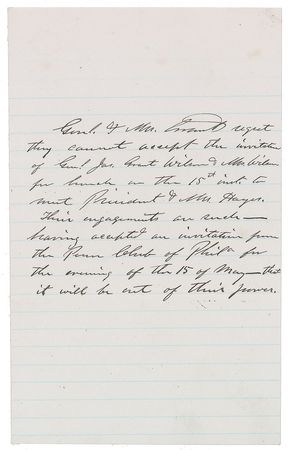 Genl. & Mrs. Grant regret
they cannot accept the invitation
of Genl. Jas. Grant Wilson & Mrs. Wilson
for lunch on the 15th inst. to
meet President & Mrs. Hayes.
Their engagements are such—
having accepted an invitation from
the Penn Club of Phila for
the evening of the 15 of May—that
it will be out of their power.